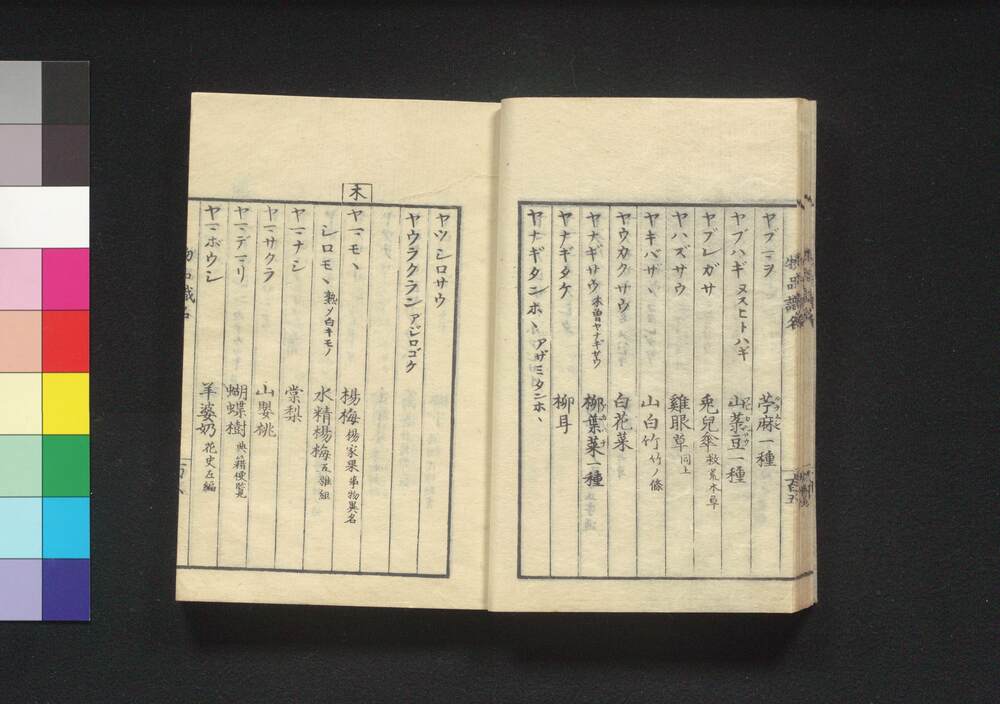 ヤブマヲ 苧麻一種
ヤブハギ ヌスヒトハギ 山菉豆一種
ヤブレガサ 兎兒傘 救荒本草
ヤハズサウ 雞眼草 同上
ヤキバザヽ 山白竹 竹ノ條
ヤウカクサウ 白花菜
ヤナギサウ 木曽ヤナギサウ 柳葉菜一種
ヤナギタケ 柳耳
ヤナギタンホヽ アザミタンホヽ
ヤツシロサウ
ヤウラクラン アジロゴケ
木
ヤマモヽ 楊梅 楊家果 事物異名
シロモヽ 熟ノ白キモノ 水精楊梅 五雜組
ヤマナシ 棠梨
ヤマサクラ 山嬰桃
ヤマデマリ 蝴蝶樹 典籍便覧
ヤマボウシ 羊婆奶 花史左編